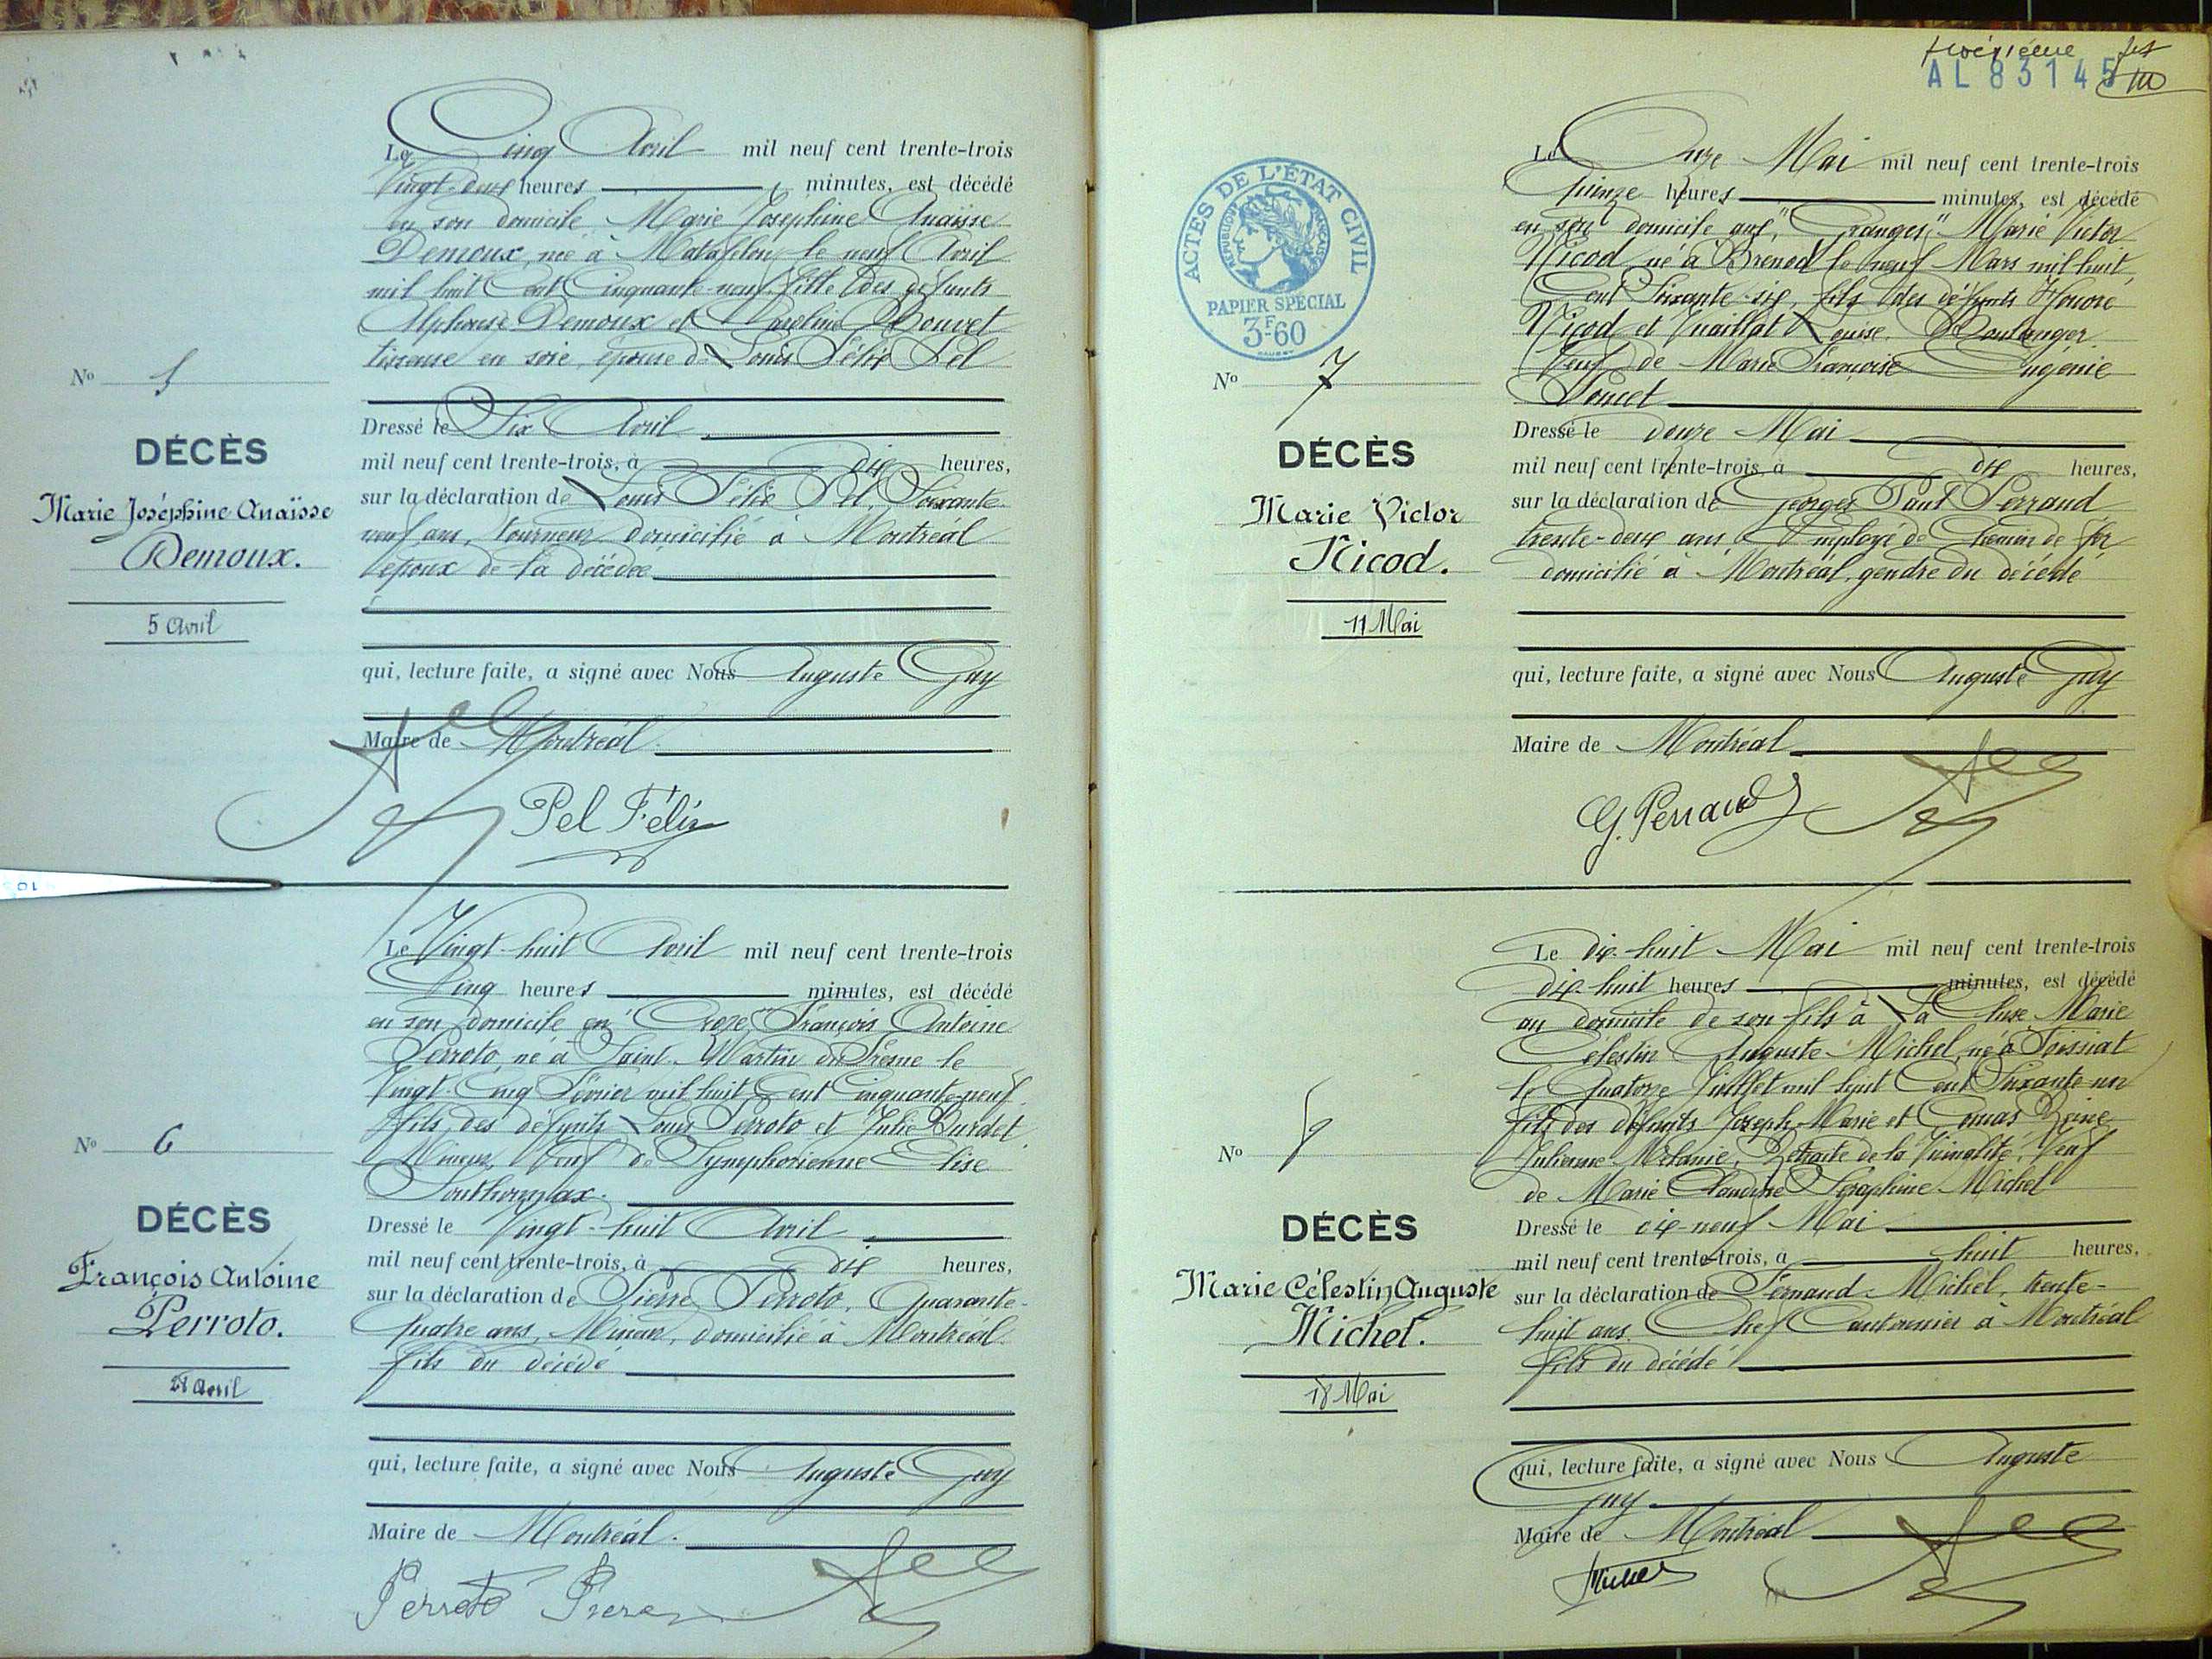 Le Cinq Avril mil neuf cent trente-trois
Vingt-deux heures minutes, est décédé
en son domicile Marie Joséphine Anaïsse
Demoux, née à Matafelon le neuf Avril
mil huit Cent Cinquante-neuf, fille des défunts
Alphonse Demoux et Caroline Bouvet
tisseuse en soie, épouse de Louis Félix Pel
Nº 5
DÉCÈS
Marie Joséphine Anaïsse
Demoux.
5 Avril
Dressé le Six Avril
mil neuf cent trente-trois, à dix heures,
sur la déclaration de Louis Félix Pel, Soixante-
neuf ans, tourneur domicilié à Montréal
époux de la décédée
qui, lecture faite, a signé avec Nous Auguste Guy
Maire de Montréal
Pel Félix
Le Vingt-huit Avril mil neuf cent trente-trois
Cinq heures minutes, est décédé
en son domicile en "Croze" François Antoine
Perroto, né à Saint-Martin du Fresne le
Vingt-Cinq Février mil huit Cent Cinquante-neuf
fils des défunts Louis Perroto et Julie Burdet
Mineur, Veuf de Symphorienne Elise
Southonnax.
Nº 6
DÉCÈS
François Antoine
Perroto.
28 Avril
Dressé le Vingt-huit Avril
mil neuf cent trente-trois, à dix heures,
sur la déclaration de Pierre Perroto, Quarante-
quatre ans, Mineur, domicilié à Montréal
fils du décédé
qui, lecture faite, a signé avec Nous Auguste Guy
Maire de Montréal.
Perroto Pierre
AL 83145
ACTES DE L'ÉTAT CIVIL
RÉPUBLIQUE FRANÇAISE
PAPIER SPÉCIAL
3F-60
Le Onze Mai mil neuf cent trente-trois
Quinze heures minutes, est décédé
en son domicile aux "Granges" Marie Victor
Nicod né à Brenod le neuf Mars mil huit
Cent Soixante-six, fils des défunts Honoré
Nicod et Louise, Boulanger
Veuf de Marie Françoise Eugénie
Poncet
Nº 7
DÉCÈS
Marie Victor
Nicod.
11 Mai
Dressé le douze Mai
mil neuf cent trente-trois, à dix heures,
sur la déclaration de Georges Paul Perraud
trente-deux ans Employé de Chemin de fer
domicilié à Montréal, gendre du décédé
qui, lecture faite, a signé avec Nous Auguste Guy
Maire de Montréal
G. Perraud
Le dix-huit Mai mil neuf cent trente-trois
dix-huit heures minutes, est décédé
au domicile de son fils à La Cluse Marie
Célestin Auguste Michel, né à Toissiat
le Quatorze Juillet mil huit Cent Soixante-un
fils des défunts Joseph Marie et Reine
Julienne Mélanie, Retraité de la Vicinalité, Veuf
de Marie Claudine Séraphine Michel
Nº 8
DÉCÈS
Marie Célestin Auguste
Michel.
18 Mai
Dressé le dix-neuf Mai
mil neuf cent trente-trois, à huit heures,
sur la déclaration de Fernand Michel, trente-
huit ans Chef Cantonnier à Montréal
fils du décédé
qui, lecture faite, a signé avec Nous Auguste
Guy
Maire de Montréal
Michel